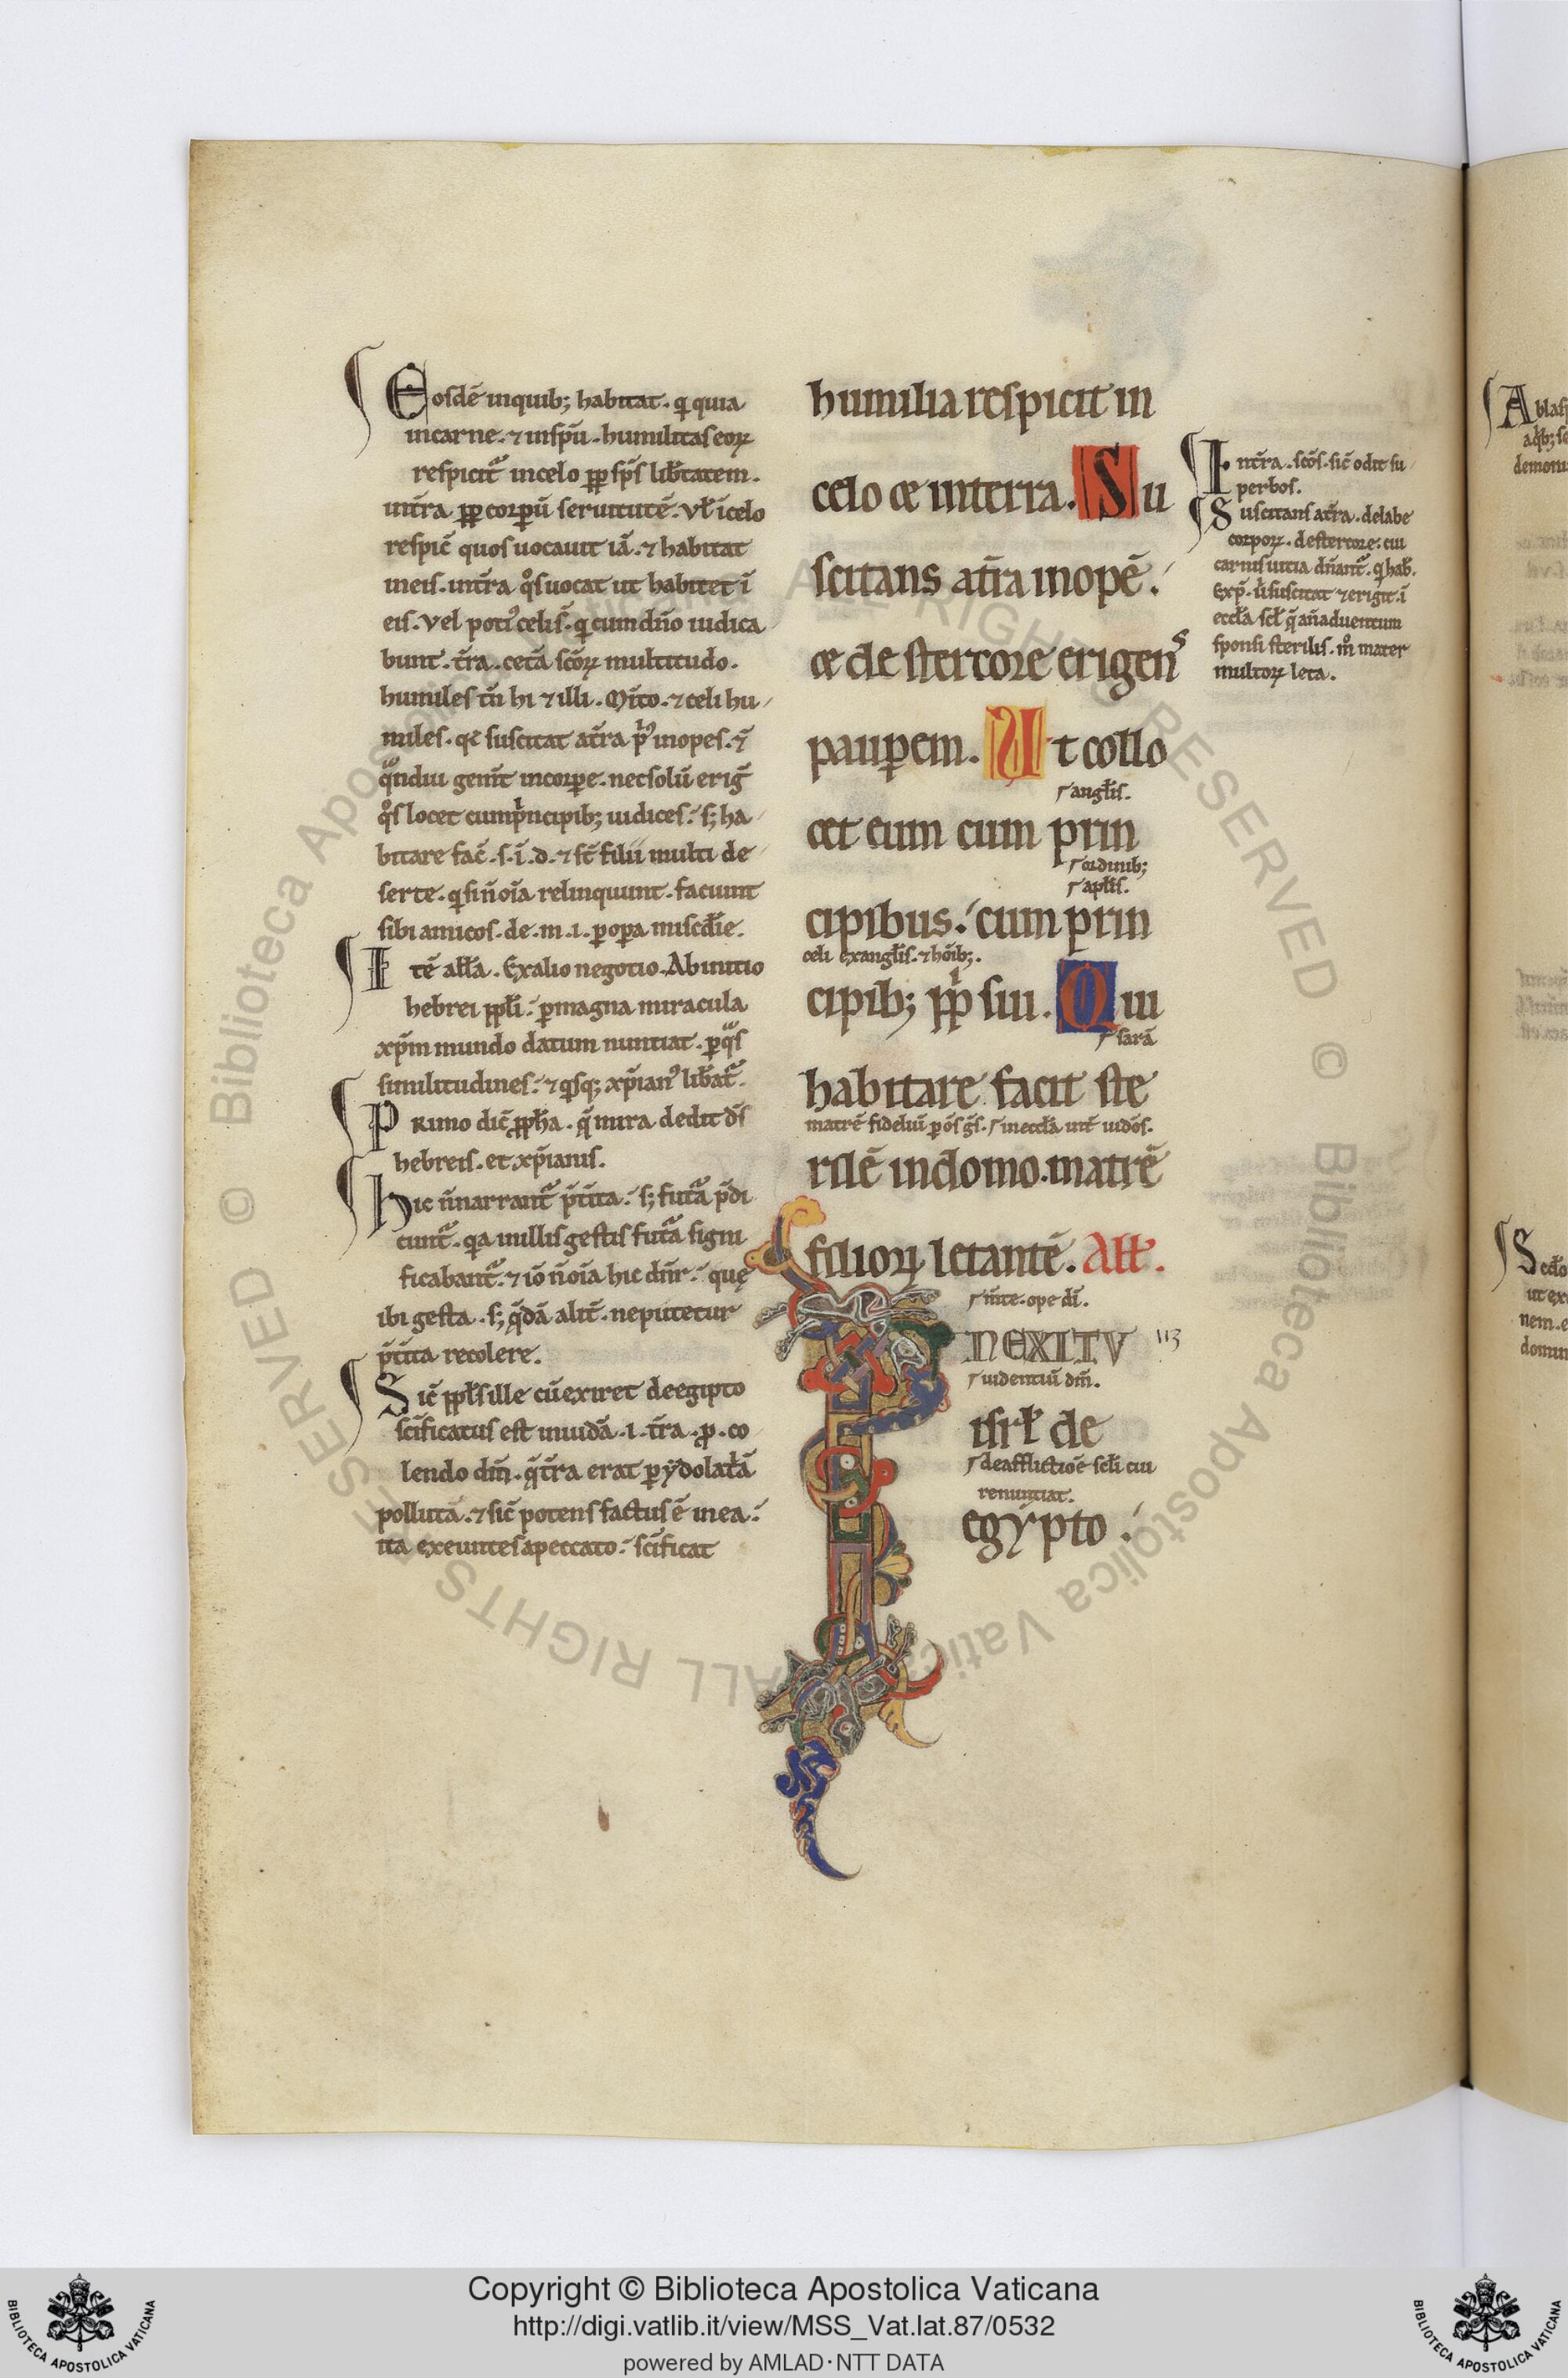 Eosdē inquib; habitat. q quia
incarne. ⁊ inspū. humilitas eoꝝ
respicit᷑ incelo ꝓp sps̄ lib̄tatem.
int̄ra ꝓp corpū seruitutē. vl̄ icelo
respic̄ quos uocauit iā. ⁊ habitat
ineis. int̄ra qͦs uocat ut habitet ī
eis. vel poti᷒ celis̄. q cum dn̄o iudica
bunt. t̄ra. cetā scōꝝ multitudo.
humiles tn̄ hi ⁊ illi. Mīto. ⁊ celi hu
miles. qē suscitat at̄ra pⁱ᷒ inopes. ⁊
qͣndiu gem̄t incorꝑe. nec solū eriḡ
qͦs locet cum pⁱncipib; iudices. s; ha
bitare fac̄. s. i. d. ⁊ st̄ filii multi de
serte. q sin̄oīa relinquunt. faciunt
sibi amicos. de. m. i. ꝑ oꝑa misc̄die.
Itē all̄a. Ex alio negotio. Ab initio
hebrei ppl̄i. ꝑ magna miracula
xp̄m mundo datum nuntiat. ꝑ qͣs
similitudines. ⁊ qsq; xp̄ian᷒ lib̄at᷑.
Primo dic̄ ꝓph̄a. q̄ mira dedit ds̄
hebreis. et xp̄ianis.
Hic n̄ narrant᷑ p̄t̄ita. s; fut᷑a p̄di
cunt᷑. qa in illis gestis fut᷑a signi
ficabant᷑. ⁊ iō n̄ oīa hic dn̄r. quę
ibi gesta. s; q̄dā alit̄. ne putetur
p̄t̄ita recolere.
Sic̄ ppl̄s ille cū exiret de egipto
sc̄ificatus est in iudā. i. t̄ra. ꝓ. co
lendo dm̄. q̄ t̄ra erat ꝑ ydolat̄ā
polluta. ⁊ sic̄ potens factus ē in ea.
ita exeuntes a peccato. sc̄ificat
humilia respicit in
celo & interra. Su
scitans at̄ra inopē.
& de stercore erigens
pauꝑem. Ut collo
⸢angl̄is.
cet eum cum prin
⸢ordinib;
⸢apl̄is.
cipibus. cum prin
celi ex angl̄is. ⁊ hōib;.
cipib; ppⁱ sui. Qui
⸢sarā
habitare facit ste
matrē fideliū ꝑ ōs gs̄. ⸢in eccl̄a int̄ uidōs.
rilē in domo. matrē
filioꝝ letantē. All̄.
⸢m̄te. ope dī.
IN EXITV 113
⸢uidentiū dm̄.
isrl̄ de
⸢de afflictiōe scl̄i cui
renuntiat.
egypto.
Int̄ra. scōs. sic̄ odit su
perbos.
Suscitans at̄ra. de labe
corpoꝝ. de stercore: cui
carnis uitia dn̄ant᷑. q hab̄.
Exp̄. ul̄ suscitat ⁊ erigit. ī
eccl̄a scl̄i q̄ an̄ aduentum
sponsi sterilis. mͦ mater
multoꝝ leta.
Copyright © Biblioteca Apostolica Vaticana
http://digi.vatlib.it/view/MSS_Vat.lat.87/0532
powered by AMLAD·NTT DATA
BIBLIOTECA APOSTOLICA VATICANA
BIBLIOTECA APOSTOLICA VATICANA